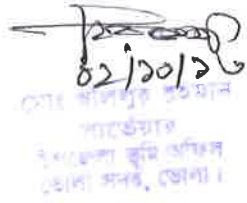 ০২/১০/১
মোঃ রহমান
সার্ভেয়ার
উপজেলা ভূমি অফিস
ভোলা সদর, ভোলা।